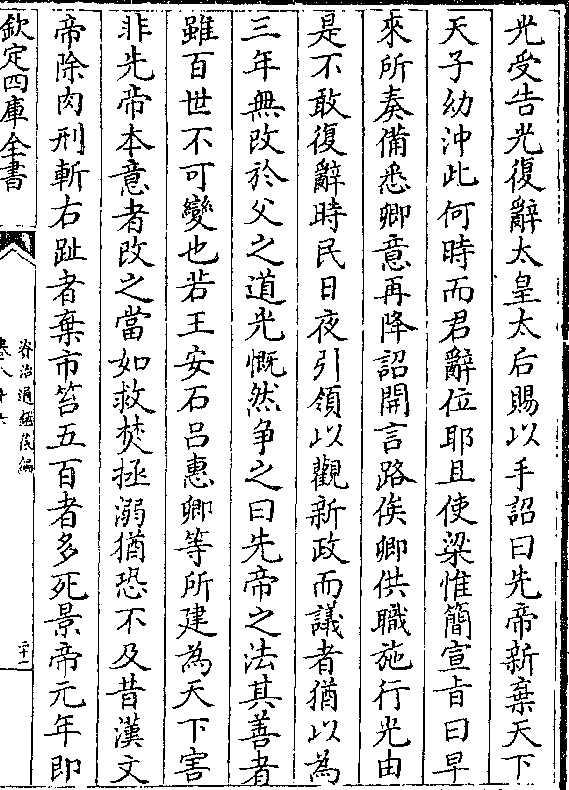 光受告光復辭太皇太后賜以手詔曰先帝新棄天下
天子幼沖此何時而君辭位耶且使梁惟簡宣旨曰早
來所奏備悉卿意再降詔開言路俟卿供職施行光由
是不敢復辭時民日夜引領以觀新政而議者猶以為
三年無改於父之道光慨然争之曰先帝之法其善者
雖百世不可變也若王安石吕惠卿等所建為天下害
非先帝本意者改之當如救焚拯溺猶恐不及昔漢文
帝除肉刑斬右趾者棄市笞五百者多死景帝元年即
欽定四庫全書
資治通鑑後編
二十一